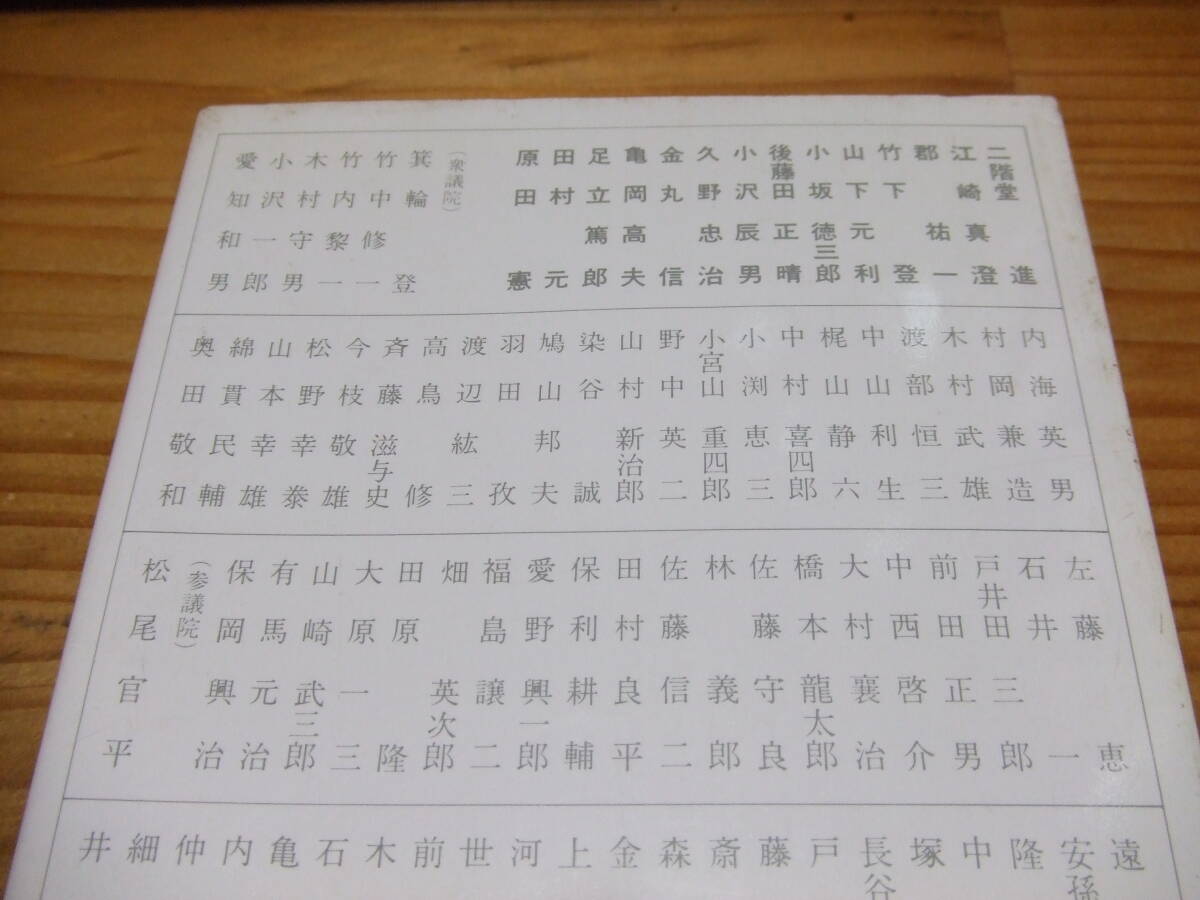 二階堂進
江崎真澄
郡祐一
竹下登
山下元利
小坂徳三郎
後藤田正晴
小沢辰男
久野忠治
金丸信
亀岡高夫
足立篤郎
田村元
原田憲
（衆議院）
箕輪登
竹中修一
竹内黎一
木村守男
小沢一郎
愛知和男
内海英男
村岡兼造
木村武雄
渡部恒三
中山利生
梶山静六
中村喜四郎
小渕恵三
小宮山重四郎
野中英二
山村新治郎
染谷誠
鳩山邦夫
羽田孜
渡辺紘三
高鳥修
斉藤滋与史
今枝敬雄
松野幸泰
山本幸雄
綿貫民輔
奥田敬和
左藤恵
石井一
戸井田三郎
前田正男
中西啓介
大村襄治
橋本龍太郎
佐藤守良
林義郎
佐藤信二
田村良平
保利耕輔
愛野興一郎
福島譲二
畑英次郎
田原隆
大原一三
山崎武三郎
有馬元治
保岡興治
（参議院）
松尾官平
遠
安孫
隆
中
塚
長谷
戸
藤
斎
森
金
上
河
世
前
木
石
亀
内
仲
細
井